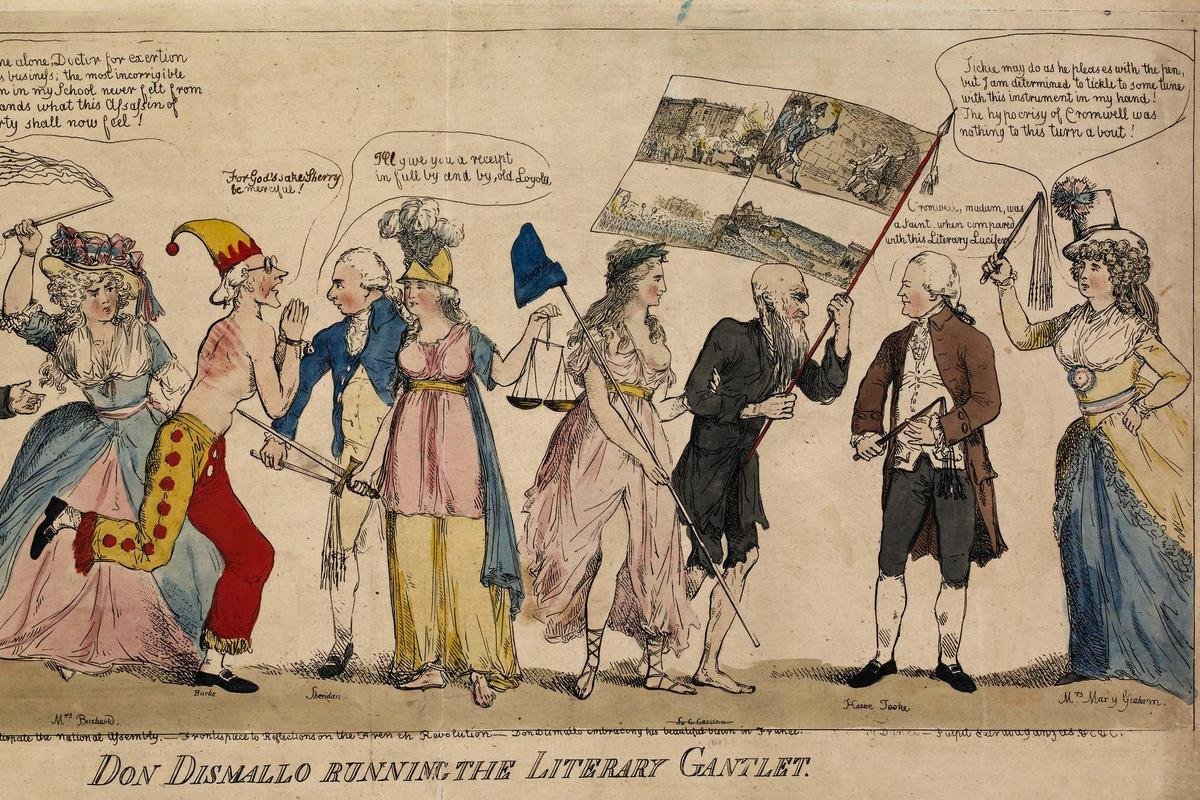 me alone, Doctor for exertion
s busineſs; the most incorrigible
n in my School never felt from
ands what this Aſsaſsin of
rty shall now feel!
For God's sake Sherry
be merciful!
I'll give you a receipt
in full by and by, old Loyola
Tickle may do as he pleases with the pen,
but I am determined to tickle to some tune
with this instrument in my hand!
The hypocrisy of Cromwell was
nothing to this turn about!
Cromwell, madam, was
a Saint, when compared
with this Literary Lucifer.
Liberty
Mrs Barbauld.
Burke
Sheridan.
Horne Tooke
Mrs Mary Graham.
the National Aſsembly. — Frontispiece to Reflections on the French Revolution — Don Dismallo embracing his beautiful vision in France.
DON DISMALLO RUNNING THE LITERARY GANTLET.